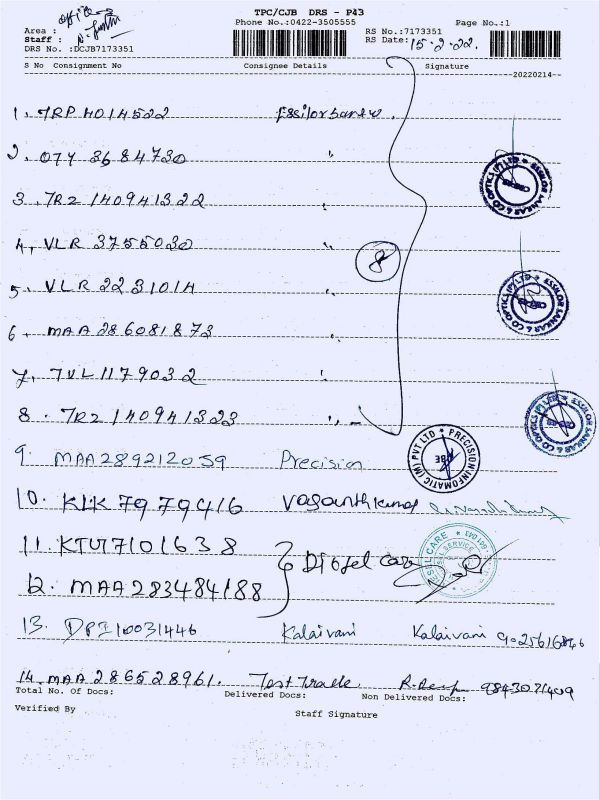 TPC/CJB DRS - P43
Phone No.:0422-3505555
Page No.:1
Area :
Staff :
DRS No. :DCJB7173351
RS No.:7173351
RS Date: 15-2-22.
S No Consignment No Consignee Details Signature
--20220214--
1. TRP 14014522 Essilor
2. 077 3684730 "
3. TRZ 140941322 "
4. VLR 3755030 "
8
5. VLR 2231014 "
6. MAA 286081873 "
7. TVL1179032 "
8. TRZ 140941323 "
ESSILOR SANKAR & CO OPTICS (P) LTD *
ESSILOR SANKAR & CO OPTICS (P) LTD *
ESSILOR SANKAR & CO OPTICS (P) LTD *
9. MAA289212059 Precision
PRECISION INFOMATIC (M) PVT LTD *
10. KLK 7979416 Vasanthkumar
11. KTU17101638
Diesel care
12. MAA283484188
DIESEL CARE
13. DPI10031446 Kalaivani Kalaivani 9025616846
14. MAA 286528961. Test Trade 9843071409
Total No. of Docs: Delivered Docs: Non Delivered Docs:
Verified By Staff Signature